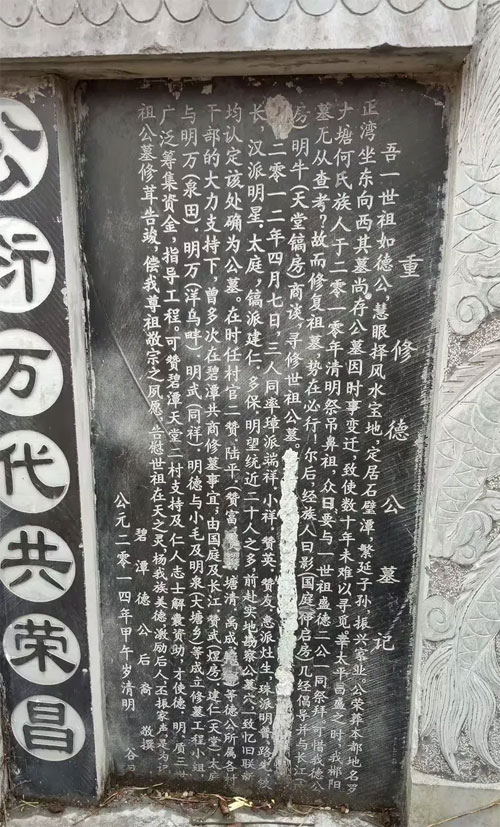 重修德公墓记
吾一世祖如德公，慧眼择风水宝地，定居石璧潭，繁延子孙，振兴家业。公荣葬本都地名罗
正湾坐东向西其墓尚存公墓因时事变迁，致使数十年未难以寻觅 太平 盛之时，我郴阳
塘何氏族人于二零一零年清明祭吊鼻祖，众曰要与一世祖盛德二公一同祭拜。可惜我德公
墓无从查考？故而修复祖墓，势在必行！尔后，经族人曰影（国庭（仰启房）几经倡导并与长江（
房）明牛（天堂镐房）商谈，寻修世祖公墓。
二零一二年四月七日，三人同率璋派端祥、小祥、赞英、赞友，惠派灶生，珠派明普、路生、
长，汉派明星、太庭，镐派建仁、多保明望统近二十人之多，前赴实地勘察公墓穴，一致忆旧联新
均认定该处确为公墓。在时任村官二赞、陆平，（赞富 塘清、禹成 等德公所属各村
干部的大力支持下，曾多次在碧潭共商修墓事宜，由国庭及长江、赞武（煜房）建仁（天堂）、太庭
与明万（泉田）、明万（洋乌畔）、明武（同祥）、明德与小毛及明泉（大塘乡）等成立修墓工程小组，
广泛筹集资金，指导工程。可赞碧潭天堂二村支持及仁人志士解囊资助，才使德、明、质三
祖公墓修茸告竣，偿我尊祖敬宗之夙愿。告慰世祖在天之灵，杨我族美德，激励后人，丕振家声，是为记
碧潭德公后裔 敬撰
公元二零一四年甲午岁清明
公衍万代共荣昌